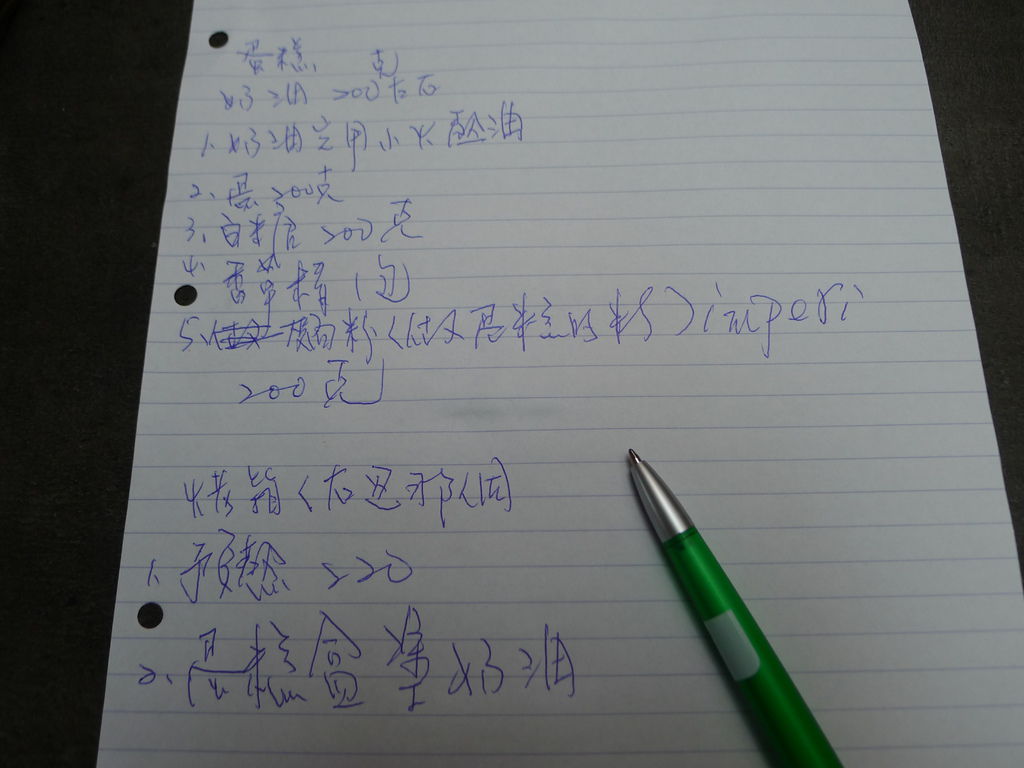 蛋糕 克
奶油 200左右
1. 奶油先用小火融油
2. 蛋 200克
3. 白糖 200克
4. 香草精 1包
5. 面粉(做蛋糕的粉) imperi
200克
烤箱(右边那个)
1. 预热 220
2. 蛋糕盒 奶油